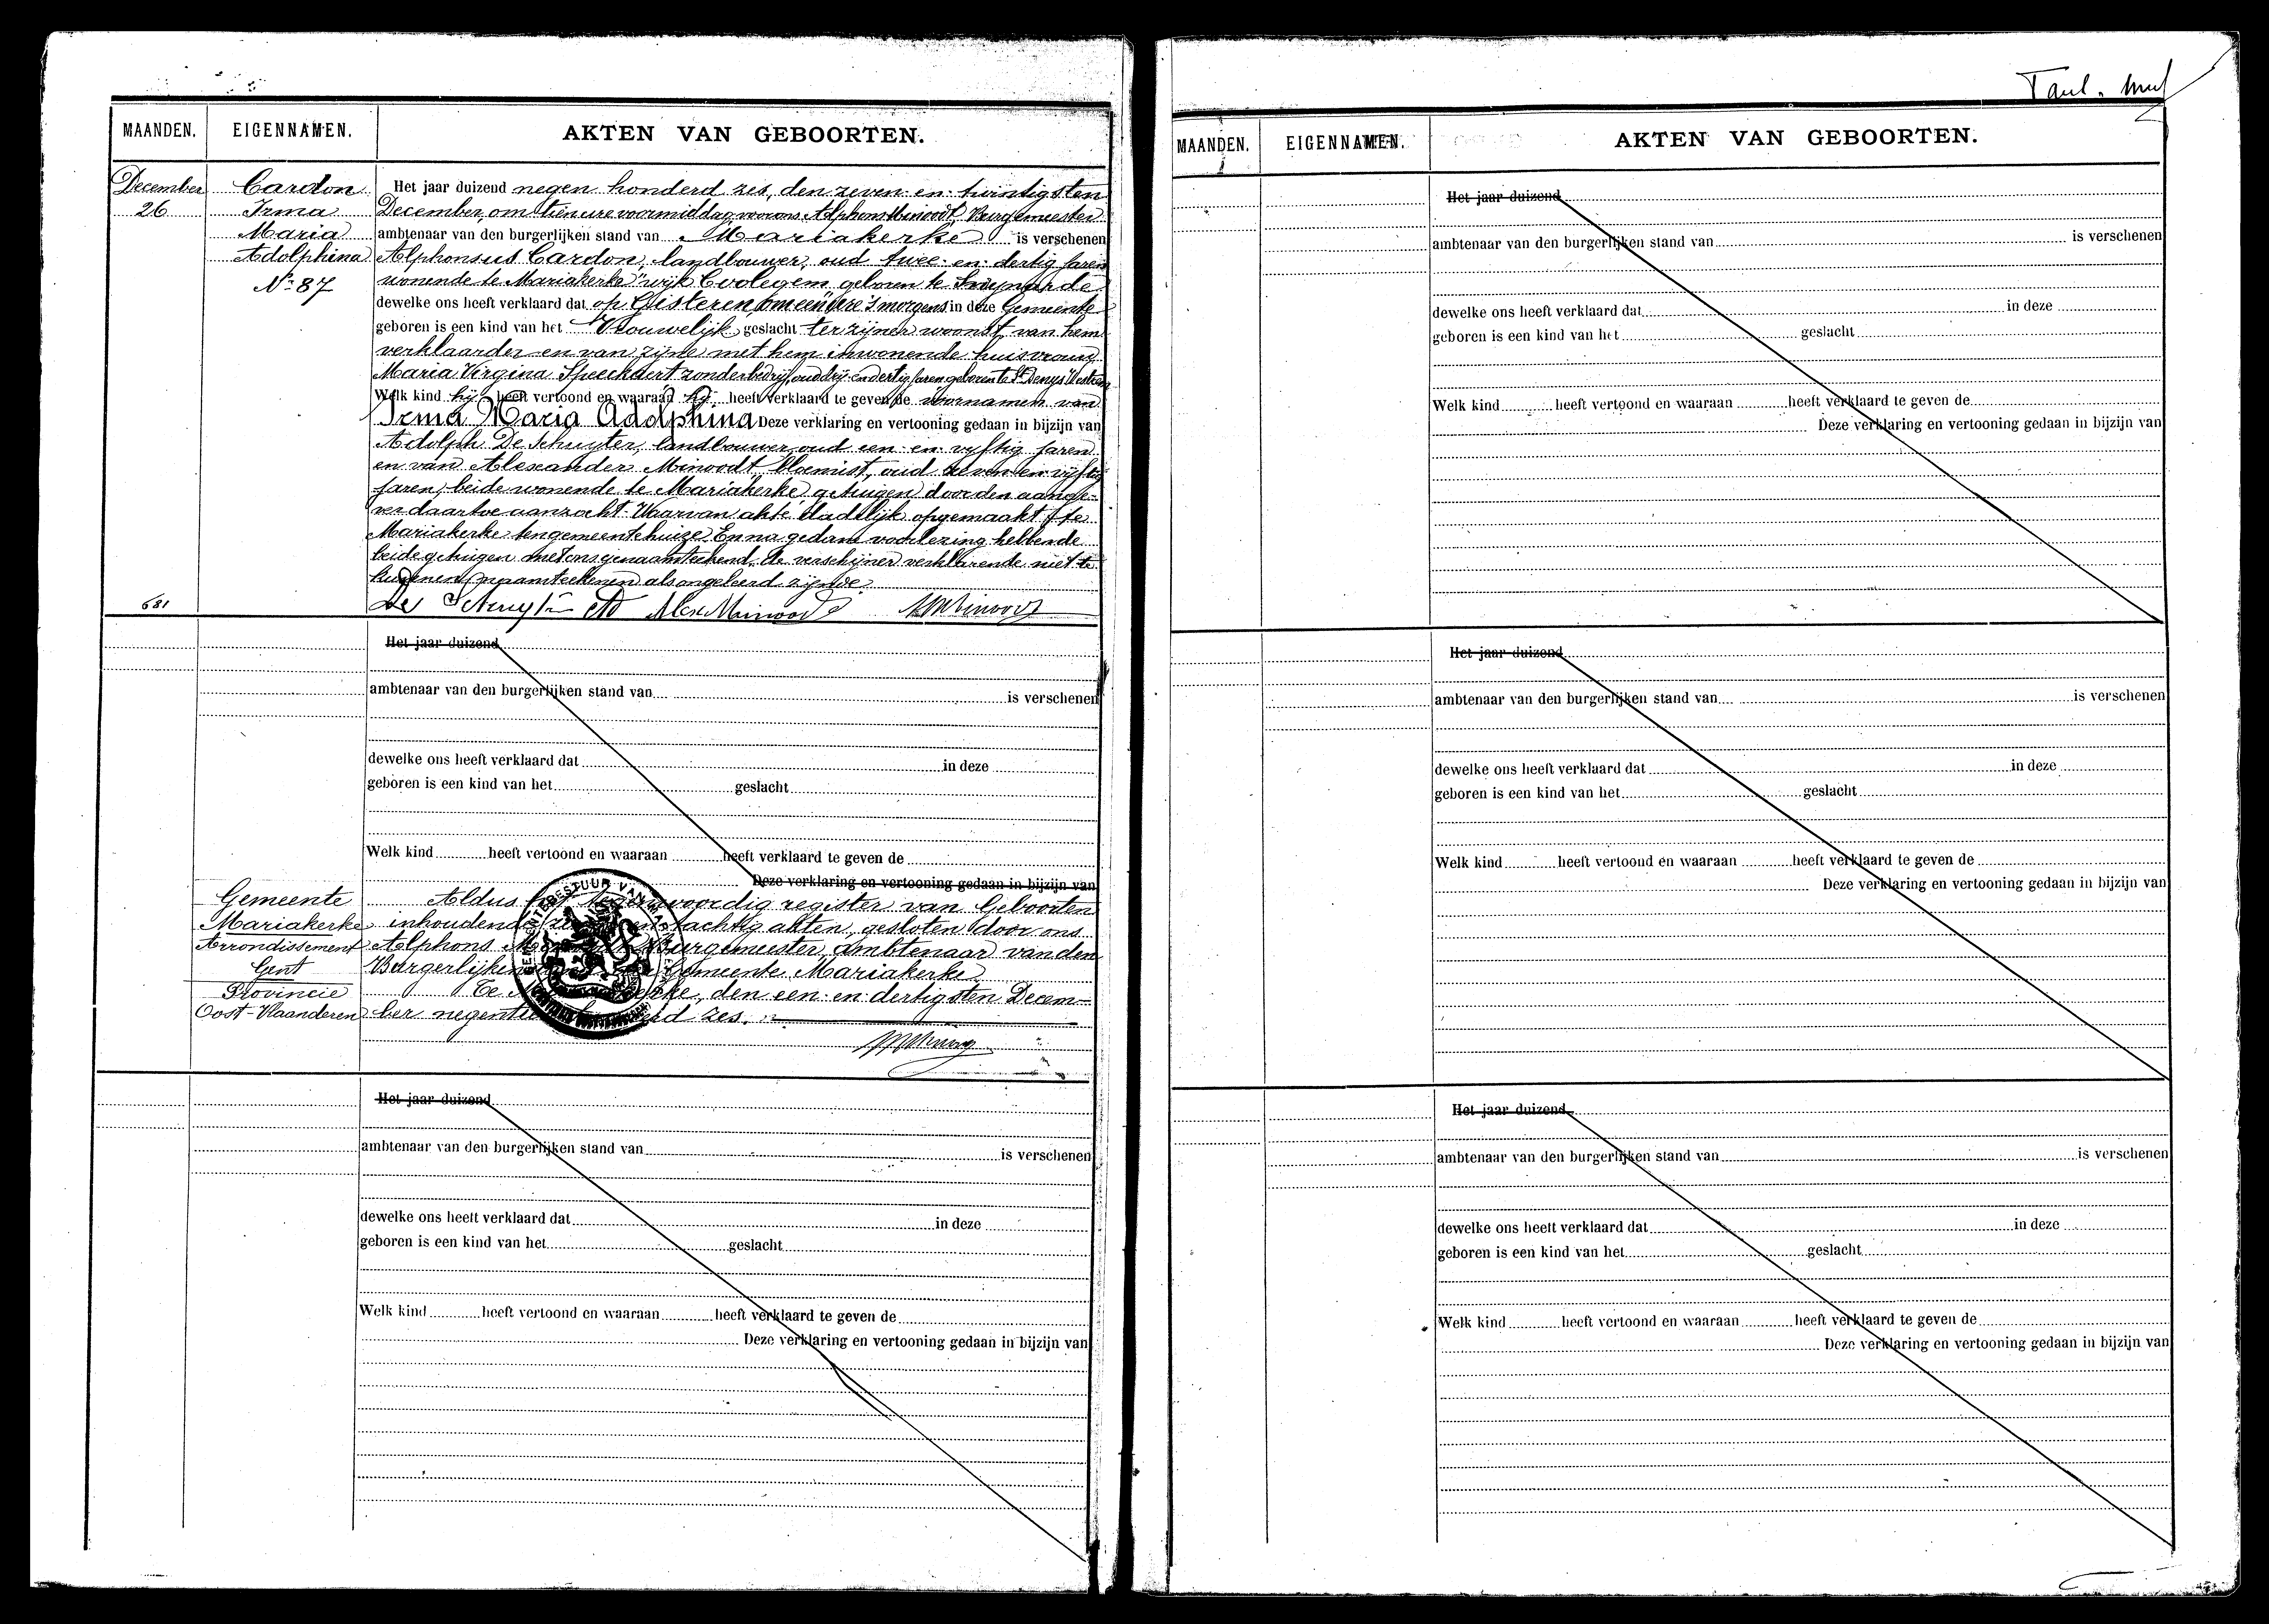 MAANDEN. EIGENNAMEN. AKTEN VAN GEBOORTEN.
December
26
Cardon
Irma
Maria
Adolphina
No. 87
Het jaar duizend negen honderd zes, den zeven-en-twintigsten
December, om tien ure voormiddag voor ons Alphons Minoodt, Burgemeester
ambtenaar van den burgerlijken stand van Mariakerke is verschenen
Alphonsus Cardon, landbouwer, oud twee-en-dertig jaren
wonende te Mariakerke wijk Coolegem geboren te
dewelke ons heeft verklaard dat op Gisteren om een ure 's morgens in deze Gemeente
geboren is een kind van het Vrouwelijk geslacht ter zijner woonst, van hem
verklaarder en van zijne met hem inwonende huisvrouw
Maria Virgina Speeckaert zonder bedrijf, oud drij-en-dertig jaren geboren te St Denys Westrem
Welk kind hij heeft vertoond en waaraan hij heeft verklaard te geven de voornamen van
Irma Maria Adolphina Deze verklaring en vertooning gedaan in bijzijn van
Adolph De Schuyter, landbouwer, oud een-en-vyftig jaren
en van Alexander Minoodt, bloemist, oud zeven-en-vyftig
jaren, beide wonende te Mariakerke, getuigen door den aange-
ver daartoe aanzocht. Waarvan akte dadelijk opgemaakt te
Mariakerke ten gemeentehuize. En na gedane voorlezing hebbende
beide getuigen met ons genaamteekend, de verschijner verklarende niet te
kunnen naamteekenen als ongeleerd zijnde.
681
De Schuyter Ad Alex Minoodt A Minoodt
Het jaar duizend
ambtenaar van den burgerlijken stand van is verschenen
dewelke ons heeft verklaard dat in deze
geboren is een kind van het geslacht
Welk kind heeft vertoond en waaraan heeft verklaard te geven de
Deze verklaring en vertooning gedaan in bijzijn van
Gemeente
Mariakerke
Arrondissement
Gent
Provincie
Oost-Vlaanderen
Aldus het tegenwoordig register van Geboorten
inhoudende en tachtig akten, gesloten door ons
Alphons Burgemeester, ambtenaar van den
Burgerlijken Gemeente Mariakerke
Te den een-en-dertigsten Decem-
ber zes.
Het jaar duizend
ambtenaar van den burgerlijken stand van is verschenen
dewelke ons heeft verklaard dat in deze
geboren is een kind van het geslacht
Welk kind heeft vertoond en waaraan heeft verklaard te geven de
Deze verklaring en vertooning gedaan in bijzijn van
MAANDEN. EIGENNAMEN. AKTEN VAN GEBOORTEN.
Het jaar duizend
ambtenaar van den burgerlijken stand van is verschenen
dewelke ons heeft verklaard dat in deze
geboren is een kind van het geslacht
Welk kind heeft vertoond en waaraan heeft verklaard te geven de
Deze verklaring en vertooning gedaan in bijzijn van
Het jaar duizend
ambtenaar van den burgerlijken stand van is verschenen
dewelke ons heeft verklaard dat in deze
geboren is een kind van het geslacht
Welk kind heeft vertoond en waaraan heeft verklaard te geven de
Deze verklaring en vertooning gedaan in bijzijn van
Het jaar duizend
ambtenaar van den burgerlijken stand van is verschenen
dewelke ons heeft verklaard dat in deze
geboren is een kind van het geslacht
Welk kind heeft vertoond en waaraan heeft verklaard te geven de
Deze verklaring en vertooning gedaan in bijzijn van